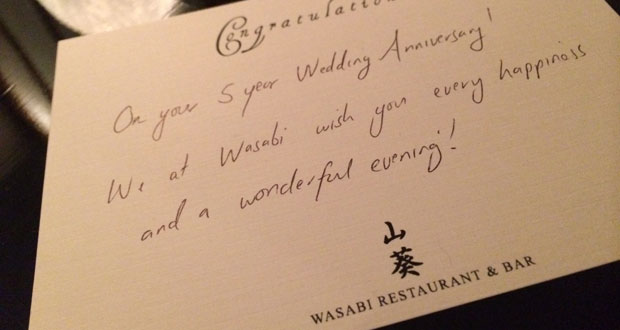 Congratulation
On your 5 year Wedding Anniversary!
We at Wasabi wish you every happiness
and a wonderful evening!
山
葵
WASABI RESTAURANT & BAR